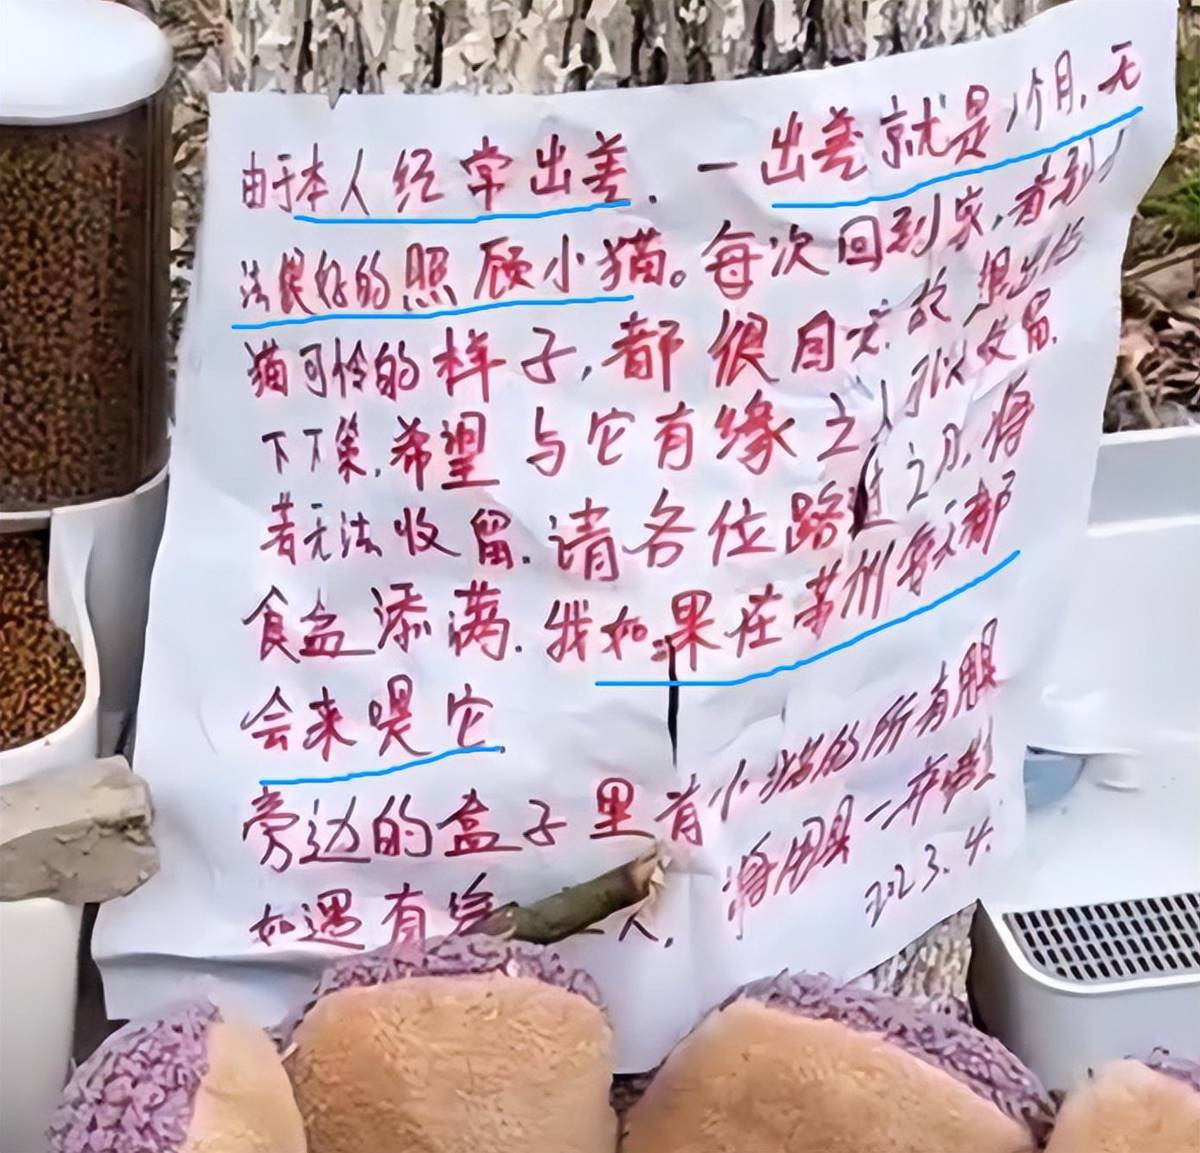 由于本人经常出差，一出差就是1个月，无
法良好的照顾小猫。每次回到家，看到小
猫可怜的样子，都很自责，故想出此
下下策，希望与它有缘之人可以收留，
若无法收留，请各位路过之人，将
食盆添满，我如果在苏州每天都
会来喂它
旁边的盒子里有小猫的所有用具
如遇有缘人，将用具一并带走
2023.4.